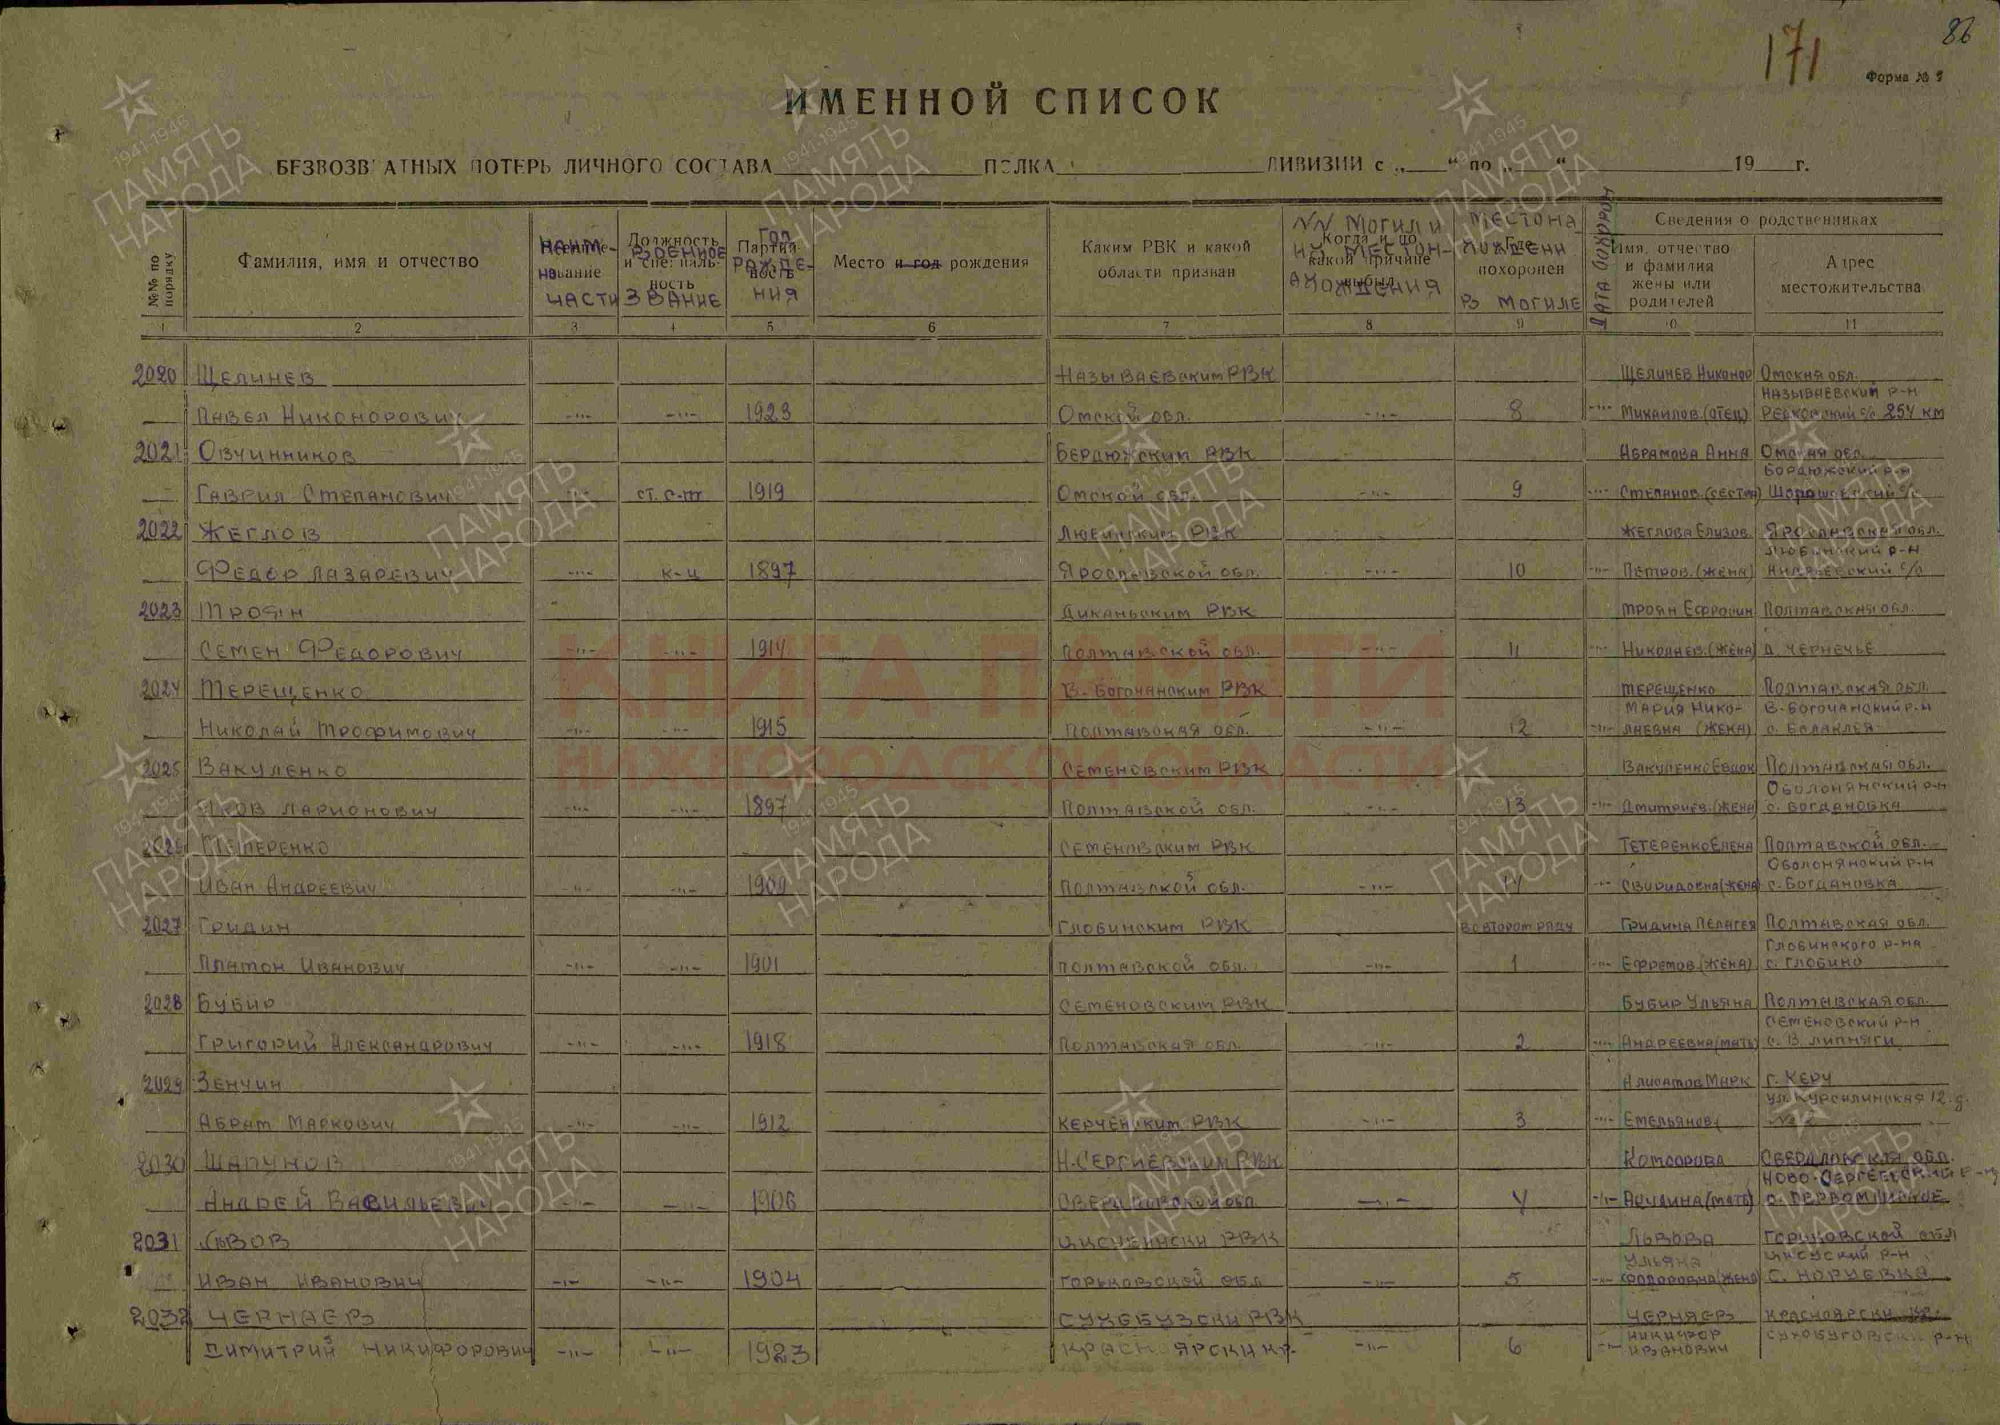 86
171
Форма № 9
ИМЕННОЙ СПИСОК
БЕЗВОЗВ АТНЫХ ПОТЕРЬ ЛИЧНОГО СОСТАВА ПОЛКА ДИВИЗИИ с „ “ по „ “ 19 г.
№№ по порядку
Фамилия, имя и отчество
НАИМ-НО вание ЧАСТИ
Должность и специальность ВОЕННОЕ ЗВАНИЕ
Партийность ГОД РОЖДЕНИЯ
Место и год рождения
Каким РВК и какой области призван
Когда и по какой причине выбыл NN МОГИЛИ ИХ МЕСТОНАХОЖДЕНИЯ
Где похоронен МЕСТОНАХОЖДЕНИ В МОГИЛЕ
ДАТА ПОХОРОН
Сведения о родственниках
Имя, отчество и фамилия жены или родителей
Адрес местожительства
1 2 3 4 5 6 7 8 9 10 11
2020 ЩЕЛИНЕВ НАЗЫВАЕВСКИМ РВК ЩЕЛИНЕВ НИКОНОР ОМСКАЯ ОБЛ.
НАЗЫВАЕВСКИЙ Р-Н
ПАВЕЛ НИКОНОРОВИЧ -"- -"- 1923 ОМСКОЙ ОБЛ. -"- 8 -"- МИХАИЛОВ.(ОТЕЦ) С/С 254 КМ
2021 ОВЧИННИКОВ БЕРДЮЖСКИМ РВК АБРАМОВА АННА ОМСКАЯ ОБЛ.
БОРДЮЖСКИЙ Р-Н
ГАВРИЛ СТЕПАНОВИЧ -"- СТ. С-Т 1919 ОМСКОЙ ОБЛ. -"- 9 -"- СТЕПАНОВ.(СЕСТРА) С/С
2022 ЖЕГЛОВ ЛЮБИМСКИМ РВК ЖЕГЛОВА ЕЛИЗОВ ЯРОСЛАВСКАЯ ОБЛ.
ЛЮБИМСКИЙ Р-Н
ФЕДОР ЛАЗАРЕВИЧ -"- К-Ц 1897 ЯРОСЛАВСКОЙ ОБЛ. -"- 10 -"- ПЕТРОВ.(ЖЕНА) С/С
2023 ТРОЯН ДИКАНЬСКИМ РВК ТРОЯН ЕФРОСИН ПОЛТАВСКАЯ ОБЛ.
СЕМЕН ФЕДОРОВИЧ -"- -"- 1914 ПОЛТАВСКОЙ ОБЛ. -"- 11 -"- НИКОЛАЕВ.(ЖЕНА) Д. ЧЕРНЕЧЬЕ
2024 ТЕРЕЩЕНКО В-БОГОЧАНСКИМ РВК ТЕРЕЩЕНКО ПОЛТАВСКАЯ ОБЛ.
МАРИЯ НИКО- В-БОГОЧАНСКИЙ Р-Н
НИКОЛАЙ ТРОФИМОВИЧ -"- -"- 1915 ПОЛТАВСКАЯ ОБЛ. -"- 12 -"- ЛАЕВНА (ЖЕНА) С. БАЛАКЛЕЯ
2025 ВАКУЛЕНКО СЕМЕНОВСКИМ РВК ВАКУЛЕНКО ЕВДОК ПОЛТАВСКАЯ ОБЛ.
ОБОЛОНЯНСКИЙ Р-Н
ЯКОВ ЛАРИОНОВИЧ -"- -"- 1897 ПОЛТАВСКОЙ ОБЛ. -"- 13 -"- ДМИТРИЕВ.(ЖЕНА) С. БОГДАНОВКА
2026 ТЕТЕРЕНКО СЕМЕНОВСКИМ РВК ТЕТЕРЕНКО ЕЛЕНА ПОЛТАВСКОЙ ОБЛ.
ОБОЛОНЯНСКИЙ Р-Н
ИВАН АНДРЕЕВИЧ -"- -"- 1909 ПОЛТАВСКОЙ ОБЛ. -"- 14 -"- СВИРИДОВНА(ЖЕНА) С. БОГДАНОВКА
2027 ГРИДИН ГЛОБИНСКИМ РВК ВО ВТОРОМ РЯДУ ГРИДИНА ПЕЛАГЕЯ ПОЛТАВСКАЯ ОБЛ.
ГЛОБИНСКОГО Р-НА
ПЛАТОН ИВАНОВИЧ -"- -"- 1901 ПОЛТАВСКОЙ ОБЛ. -"- 1 -"- ЕФРЕМОВ.(ЖЕНА) С. ГЛОБИНО
2028 БУБИР СЕМЕНОВСКИМ РВК БУБИР УЛЬЯНА ПОЛТАВСКАЯ ОБЛ.
СЕМЕНОВСКИЙ Р-Н
ГРИГОРИЙ АЛЕКСАНДРОВИЧ -"- -"- 1918 ПОЛТАВСКАЯ ОБЛ. -"- 2 -"- АНДРЕЕВНА(МАТЬ) С. В. ЛИПНЯГИ
2029 ЗЕНЧИН МАРК Г. КЕРЧ
12 Д.
АБРАМ МАРКОВИЧ -"- -"- 1912 КЕРЧЕНСКИМ РВК -"- 3 -"- ЕМЕЛЬЯНОВ
2030 ШАПУНОВ Н-СЕРГИЕВСКИМ РВК КОМАРОВА СВЕРДЛОВСКАЯ ОБЛ.
НОВО-СЕРГЕЕВСКИЙ Р-Н
АНДРЕЙ ВАСИЛЬЕВИЧ -"- -"- 1906 СВЕРДЛОВСКОЙ ОБЛ -"- 4 -"- (МАТЬ)
2031 ЛЬВОВ РВК ЛЬВОВА ГОРЬКОВСКОЙ ОБЛ
УЛЬЯНА Р-Н
ИВАН ИВАНОВИЧ -"- -"- 1904 ГОРЬКОВСКОЙ ОБЛ -"- 5 -"- ФЕДОРОВНА(ЖЕНА) С. НОРУЕВКА
2032 ЧЕРНАЕВ СУХЕБУЗСКИ РВК ЧЕРНЯЕВ КРАСНОЯРСКИ КР.
ДИМИТРИЙ НИКИФОРОВИЧ -"- -"- 1923 КРАСНОЯРСКИ КР. -"- 6 -"- НИКИФОР ИВАНОВИЧ СУХОБУГОВСКИ Р-Н
КНИГА ПАМЯТИ
НИЖЕГОРОДСКОЙ ОБЛАСТИ
1941-1945
ПАМЯТЬ НАРОДА